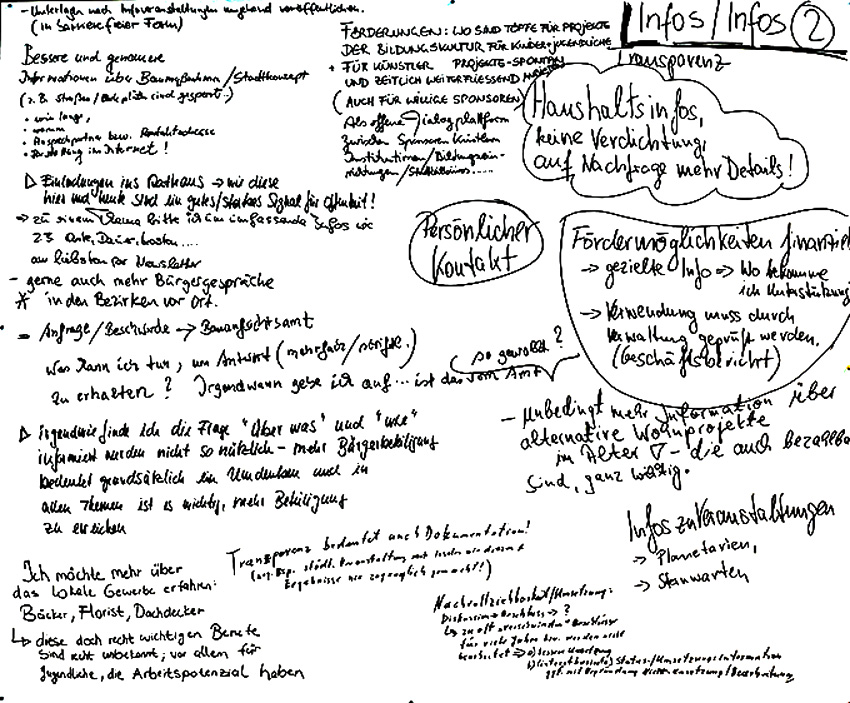 - Unterlagen nach Infoveranstaltungen umgehend veröffentlichen.
(in barrierefreier Form)
Bessere und genauere
Informationen über Baumaßnahmen/Stadtkonzept
(z.B. Straßen/ sind gesperrt..)
• wie lange,
• warum
• Ansprechpartner bzw. Kontaktadresse
• im Internet!
▷ Einladungen ins Rathaus → wie diese
hier und heute sind ein gutes/starkes Signal für Offenheit!
→ zu einem Thema bitte ich um umfassende Infos wie
z.B. Orte, Dauer, Kosten....
am liebsten per Newsletter
- gerne auch mehr Bürgergespräche
* in den Bezirken vor Ort.
- Anfrage/Beschwerde → Bauaufsichtsamt
was kann ich tun, um Antwort (mehrfach/schriftl.)
zu erhalten? Irgendwann gebe ich auf... ist das vom Amt
so gewollt?
▷ irgendwie finde ich die Frage "über was" und "wie"
informiert werden nicht so nützlich - mehr Bürgerbeteiligung
bedeutet grundsätzlich ein Umdenken und in
allen Themen ist es wichtig, mehr Beteiligung
zu erreichen
Ich möchte mehr über
das lokale Gewerbe erfahren:
Bäcker, Florist, Dachdecker
↳ diese doch recht wichtigen Berufe
sind recht unbekannt; vor allem für
Jugendliche, die Arbeitspotenzial haben
Transparenz bedeutet auch Dokumentation!
(zum Bsp. städt. Veranstaltung
Ergebnisse nie zugänglich gemacht!!)
FÖRDERUNGEN: WO SIND TÖPFE FÜR PROJEKTE
DER BILDUNGSKULTUR FÜR KINDER+JUGENDLICHE
+ FÜR KÜNSTLER PROJEKTE-SPONTAN
UND ZEITLICH WEITERFLIESSEND
(AUCH FÜR WILLIGE SPONSOREN)
Als offene Dialogplattform
zwischen Sponsoren Künstlern
Institutionen/Bildungsein-
richtungen/Stadtteilbüros.....
Infos/Infos 2
Transparenz
Haushaltsinfos,
keine Verdichtung,
auf Nachfrage mehr Details!
Persönlicher
Kontakt
Fördermöglichkeiten finanziell
→ gezielte Info ⇒ Wo bekomme
ich Unterstützung
→ Verwendung muss durch
Verwaltung geprüft werden.
(Geschäftsbericht)
- Unbedingt mehr Information über
alternative Wohnprojekte
im Alter ▽ - die auch bezahlbar
sind, ganz wichtig.
Infos zu Veranstaltungen
→ Planetarien,
→ Sternwarten
Nachvollziehbarkeit/Umsetzung:
Diskussion → Beschluss → ?
↳ zu oft verschwinden Beschlüsse
für viele Jahre bzw. werden nicht
bearbeitet ⇒ a) bessere Umsetzung
b) Status-/Umsetzungs-Information
ggf. mit Begründung Nicht-Umsetzung/Bearbeitung